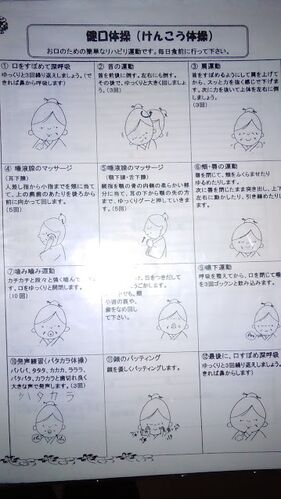 健口体操（けんこう体操）
お口のための簡単なリハビリ運動です。毎日食前に行って下さい。
①口をすぼめて深呼吸
ゆっくりと3回繰り返しましょう。（で
きれば鼻から呼吸します）
②首の運動
首を前後に倒す。左右にも倒す。
その後、ゆっくりと大きく回しましょ
う。（3回）
③肩運動
首をすぼめるようにして肩を上げて
から、スッと力を抜く感じで下げま
す。次に力を抜いて上体を左右に倒
しましょう。
（3回）
④唾液腺のマッサージ
（耳下腺）
人差し指から小指までを頬に当て
て、上の奥歯のあたりを後ろから
前に向かって回します。
（5回）
⑤唾液腺のマッサージ
（顎下腺・舌下腺）
親指を顎の骨の内側の柔らかい部
分に当て、耳の下から顎の先の方
まで、ゆっくりグーと押していきま
す。（5回）
⑥頬・唇の運動
唇を閉じて、頬をふくらませたり
ゆるめたりします。
次に唇を閉じたまま突き出し、上下
左右に動かしたり、引き締めたりし
ます。
⑦噛み噛み運動
カチカチと段々と強く噛んで
す。口をゆっくりと開閉します。
（10回）
、舌をつきだして
小唇の裏や、
歯をなめ回し
て下さい。
⑨嚥下運動
呼吸を整えてから、口を閉じて唾
を3回ゴックンと飲み込みます。
⑩発声練習（パタカラ体操）
パパパ、タタタ、カカカ、ラララ、
パタパタ、カラカラと歯切れ良く
大きな声で発声します。（3回）
パタカラ
⑪頬のパッティング
頬を優しくパッティングします。
⑫最後に、口すぼめ深呼吸
ゆっくりと3回繰り返しましょう。（で
きれば鼻からします）